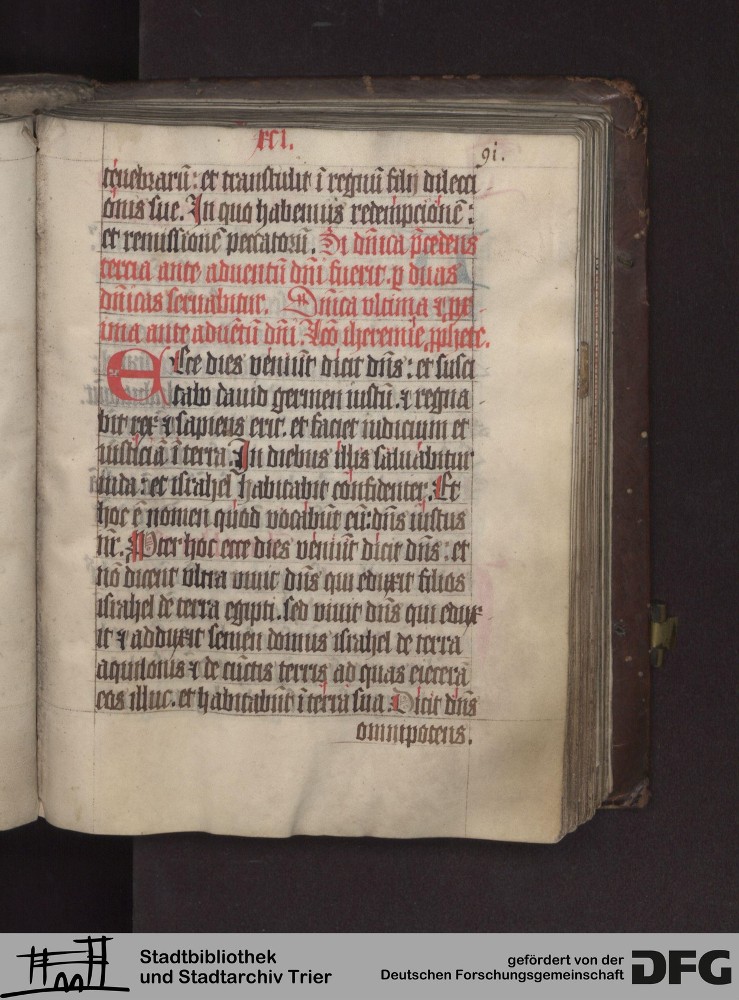 xci.
91.
tenebraru̅: et transtulit i̅ regnu̅ filij dilecti
onis sue. In quo habemus redempcione̅:
et remissione̅ peccatoru̅. Si dn̅ica p̅cedens
tercia ante aduentu̅ dn̅i fuerit. p duas
dn̅icas seruabitur. Dn̅ica vltima ⁊ pͥx
ima ante adue̅tu̅ dn̅i. Lc̅o iheremie ꝓphete.
Ecce dies veniu̅t dicit dn̅s: et susci
tabo dauid germen iustu̅. ⁊ regna
bit rex ⁊ sapiens erit. et faciet iudicium et
iusticia̅ i̅ terra. In diebus illis saluabitur
iuda: et israhel habitabit confidenter. Et
hoc e̅ nomen quod vocabu̅t eu̅: dn̅s iustus
nr̅. Propter hoc ecce dies veniu̅t dicit dn̅s: et
no̅ dicent vltra viuit dn̅s qui eduxit filios
israhel de terra egipti. sed viuit dn̅s qui edux-
it ⁊ adduxit semen domus israhel de terra
aquilonis ⁊ de cu̅ctis terris ad quas eiecera̅
eos illuc. et habitabu̅t i̅ terra sua. Dicit dn̅s
omnipotens.
Stadtbibliothek
und Stadtarchiv Trier
gefördert von der
Deutschen Forschungsgemeinschaft
DFG